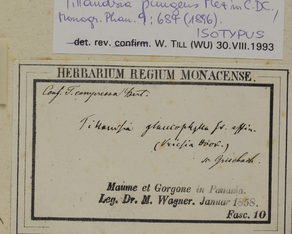 Tillandsia pungens Mez in C.DC.,
Monogr. Phan. 9: 684 (1896).
ISOTYPUS
det. rev. confirm. W. TILL (WU) 30.VIII.1993
HERBARIUM REGIUM MONACENSE.
Conf. T. compressa Bert.
Tillandsia glaucophylla Hr. affin.
(Vriesia Hook.)
n. Grisebach.
Maume et Gorgone in Panama.
Leg. Dr. M. Wagner. Januar 1858.
Fasc. 10